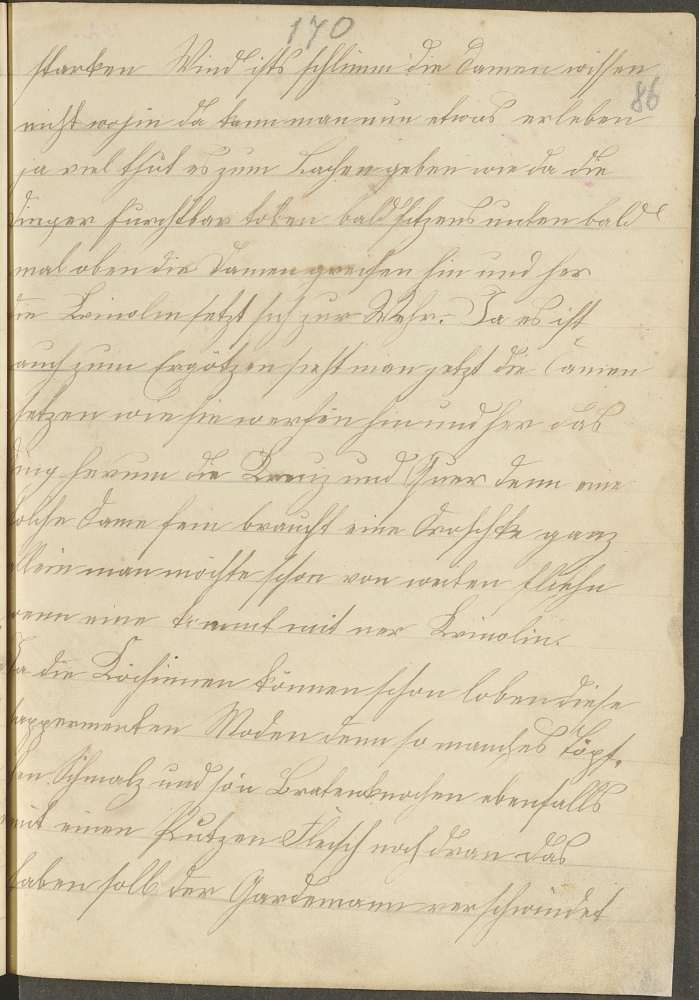 170
86
starken Wind ists schlimm die Damen wissen
nicht wohin da kann man nun etwas erleben
ja viel thut es zum Lachen geben wie da die
Dinger furchtbar toben bald sitzens unten bald
mal oben die Damen greifen hin und her
die Krinolin setzt sich zur Wehr. Ja es ist
auch zum Ergötzen sieht man jetzt die Damen
setzen wie sie werfen hin und her das
Ding herum die Kreuz und Quer denn eine
solche Dame fein braucht eine Droschke ganz
allein man möchte schon von weiten fliehn
wenn eine kommt mit ner Krinolin.
Ja die Köchinnen können schon loben diese
sappermenten Moden denn so manches Töpf.
en Schmalz und so'n Bratenknochen ebenfalls
mit einen Putzen Fleisch noch dran das
haben soll der Gardemann verschwindet